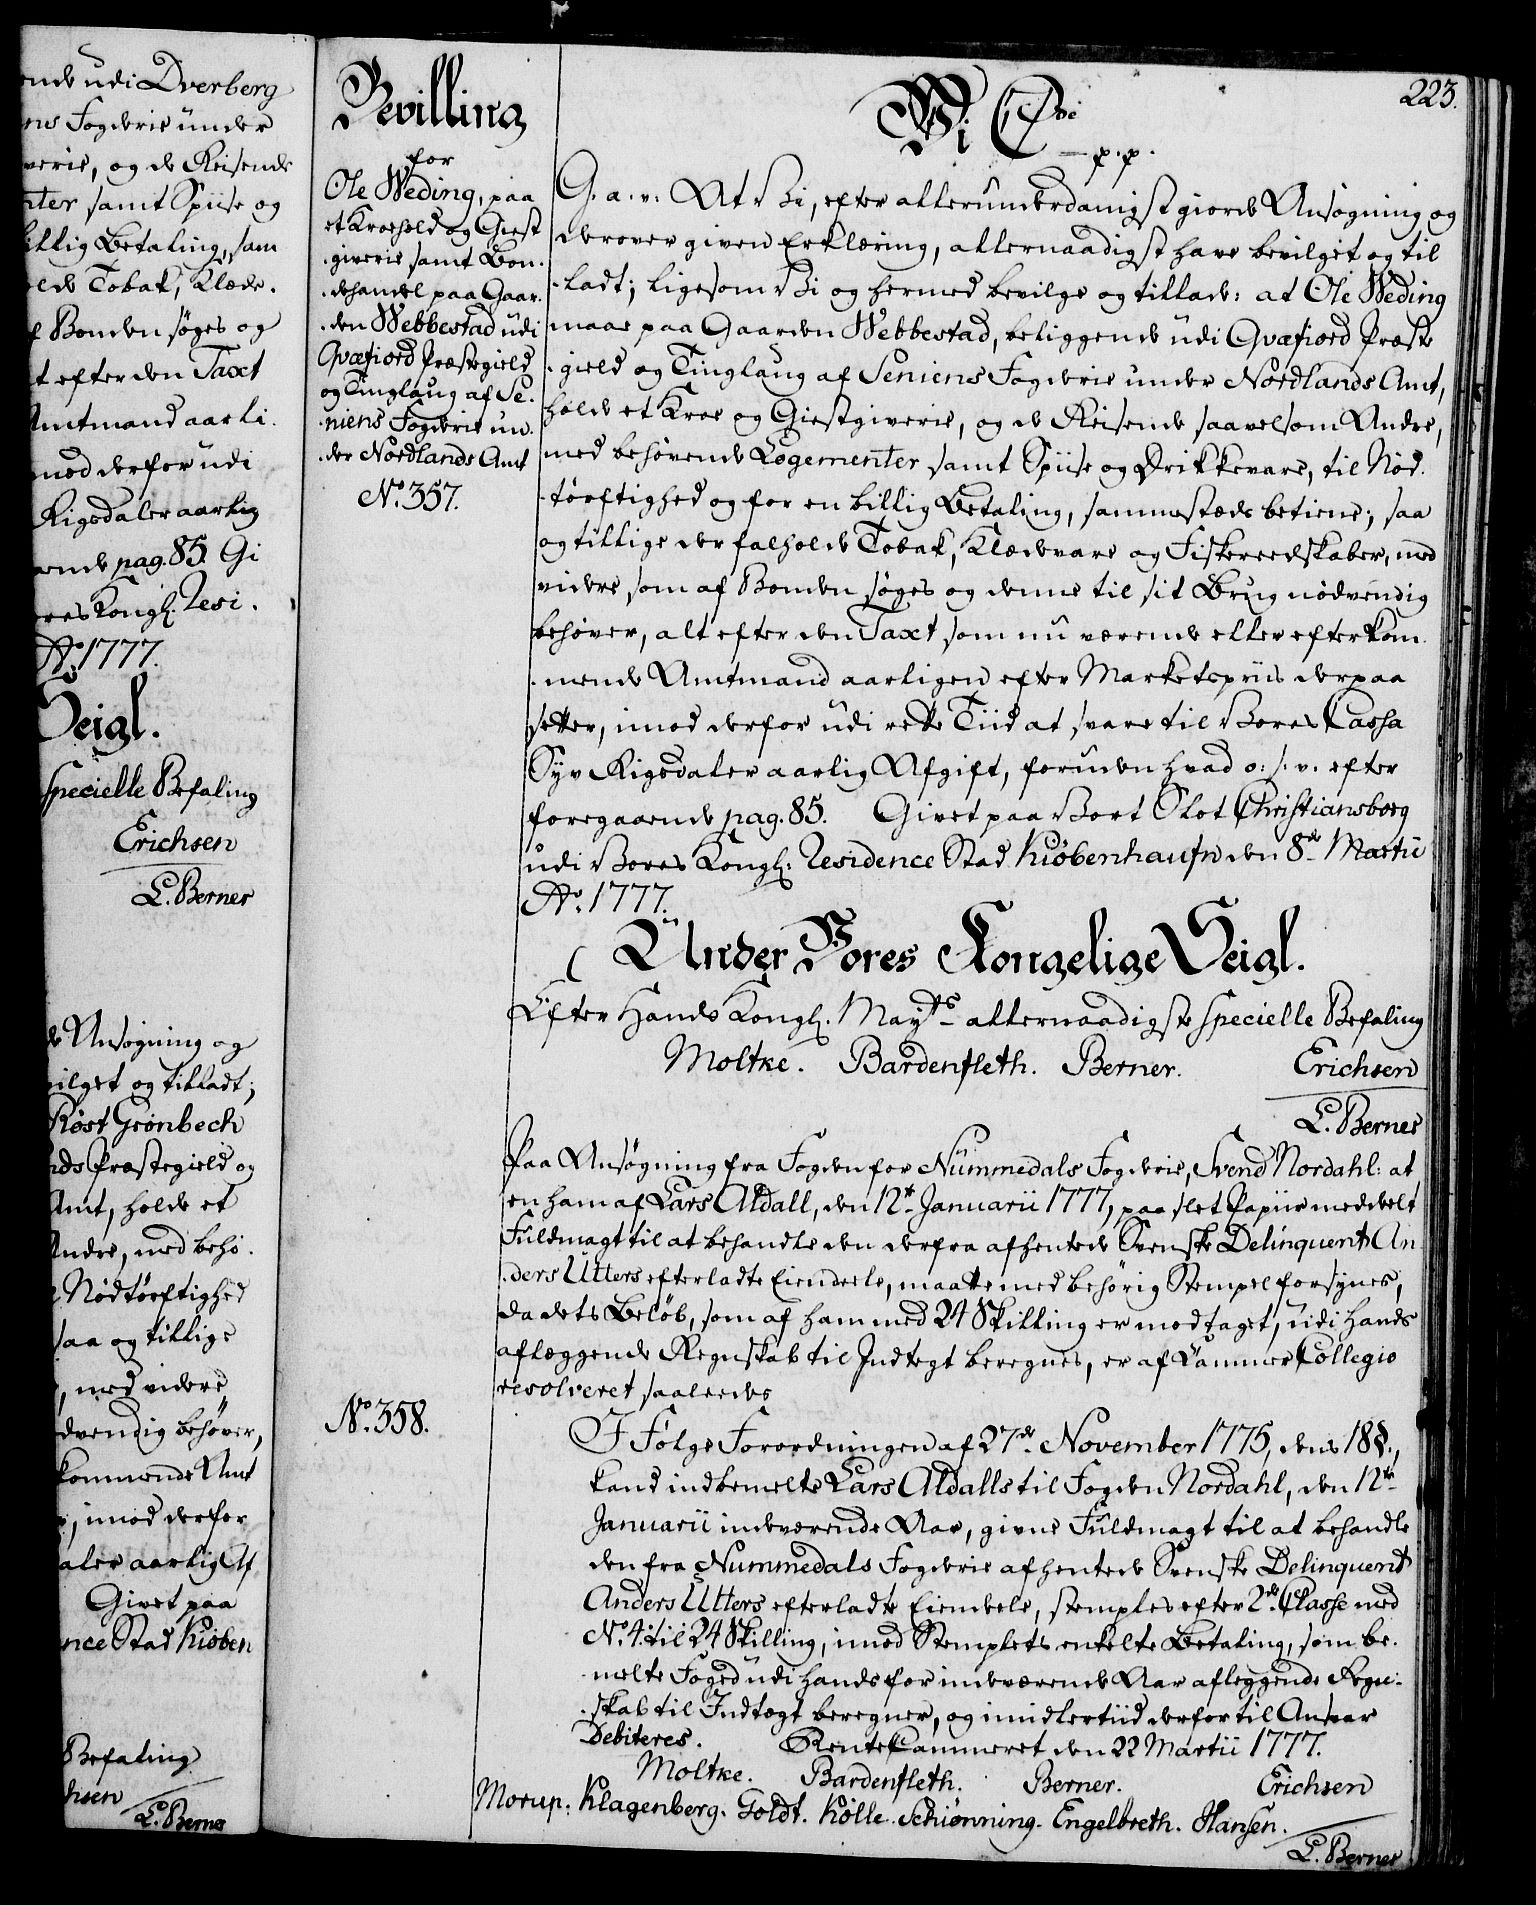 ende udi Dverberg
ens Fogderie under
verie, og de Reisende
nter samt Spiise og
billig Betaling, sam
olde Tobak, Klæde-
f Bonden søges og
t efter den Taxt
Amtmand aarli-
mod derfor udi
Rigsdaler aarlig
ende pag. 85. Gi
ores Kongl. Resi-
Ao. 1777.
Seigl.
specielle Befaling
Erichsen
L. Berner
de Ansøgning og
vilget og tilladt;
Røst Grønbech
nds Præstegield og
Amt, holde et
Andre, med behø-
Nødtørftighed
saa og tillige
, med videre
dvendig behøver,
kommende Amt
, imod derfor
aler aarlig Af
Givet paa
nce Stad Kiøben
Befaling
hsen
L. Berner
Bevilling
for
Ole Weding, paa
et Kroehold og Giest
-giverie samt Bon-
-dehandel paa Gaar-
-den Webbestad udi
Qvæfiord Præstegield
og Tinglaug af Se-
-niens Fogderie un-
-der Nordlands Amt
No. 357.
No. 358.
223.
Wi C 7de
p. p.
G. a. v: At Vi, efter allerunderdanigst giorde Ansøgning og
derover given Erklæring, allernaadigst have bevilget og til
-ladt; ligesom Vi og hermed bevilge og tillade: at Ole Weding
maae paa Gaarden Webbestad, beliggende udi Qvæfiord Præste
-gield og Tinglaug af Seniens Fogderie under Nordlands Amt,
holde et Kroe og Giestgiverie, og de Reisende saavelsom Andre,
med behøvende Logementer samt Spiise og Drikkevare, til Nød-
-tørftighed og for en billig Betaling, sammestæds betiene; saa
og tillige der falholde Tobak, Klædevare og Fiskereedskaber, med
videre, som af Bonden søges og denne til sit Brug nødvendig
behøver, alt efter den Taxt som nu værende eller efterkom-
-mende Amtmand aarligen efter Marketspriis derpaa
setter, imod derfor udi rette Tiid at svare til Vores Cassa
Syv Rigsdaler aarlig Afgift, foruden hvad o: s: v: efter
foregaaende pag. 85. Givet paa Vort Slot Christiansborg
udi Vores Kongl: Residence Stad Kiøbenhaufn den 8de Martii
Ao. 1777.
Under Vores Kongelige Seigl.
Efter Hands Kongl. Mayts allernaadigste specielle Befaling
Moltke. Bardenfleth. Berner. Erichsen
L. Berner
Paa Ansøgning fra Fogden for Nummedals Fogderie, Svend Nordahl: at
en ham af Lars Aldall, den 12te Januarii 1777, paa slet Papiir meddeelt
Fuldmagt til at behandle den derfra afhentede Svenske Delinquent An
-ders Utters efterladte Eiendeele, maatte med behørig Stempel forsynes,
da dets Beløb, som af ham med 24 Skilling er modtaget, udi hands
aflæggende Regnskab til Indtegt beregnes, er af Cammer Collegio
resolveret saaledes
I Følge Forordningen af 27de November 1775, dens 18 §.,
kand indbemelte Lars Aldalls til Fogden Nordahl, den 12te
Januarii indeværende Aar, givne Fuldmagt til at behandle
den fra Nummedals Fogderie afhentede Svenske Delinquent
Anders Utters efterladte Eiendele, stemples efter 2de Classe med
No. 4. til 24 Skilling, imod Stemplets enkelte Betaling, som be-
-melte Foged udi hands for indeværende Aar afleggende Regn-
-skab til Indtægt beregner, og imidlertiid derfor til Ansvar
Debiteres. Rente Cammeret den 22 Martii 1777.
Moltke. Bardenfleth. Berner. Erichsen
Morup. Klagenberg. Goldt. Kølle. Schiønning. Engelbreth. Hansen.
L. Berner